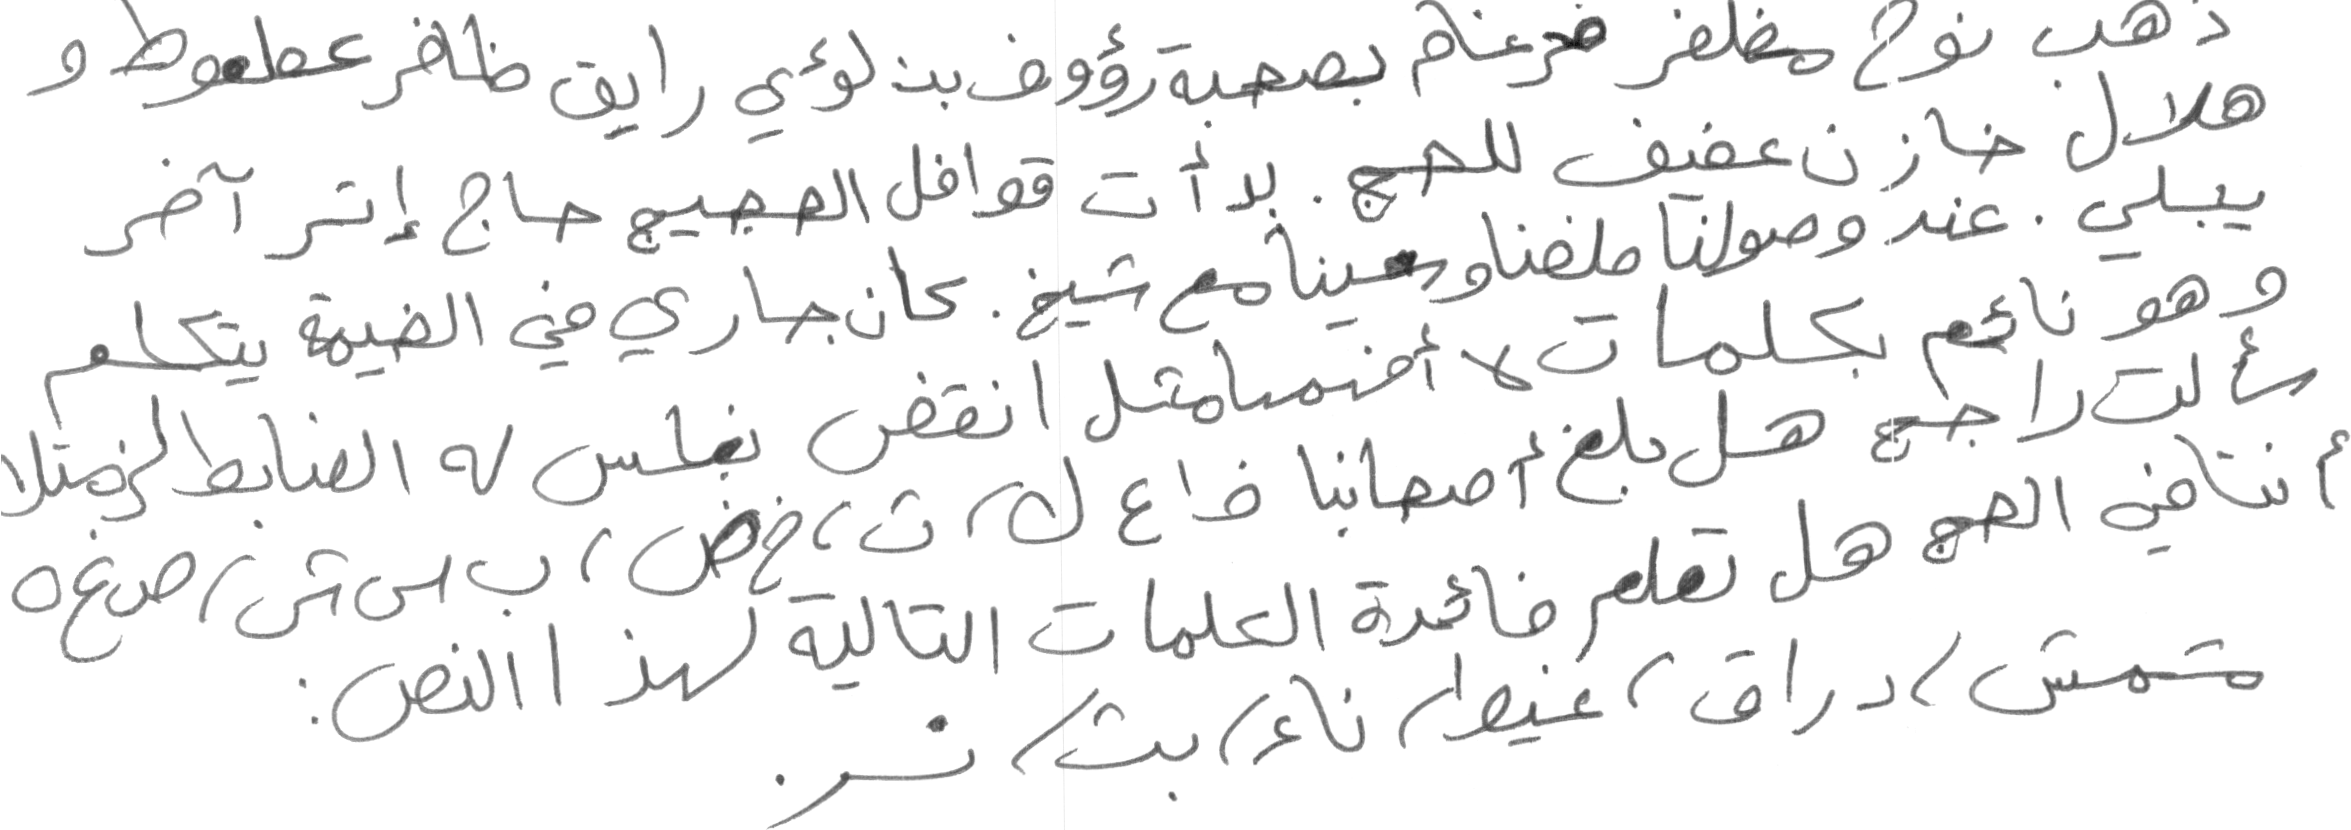 ذهب نوح مظفر ضرغام بصحبة رؤوف بن لؤي رايق ظافر عطعوط و
هلال خازن عفيف للحج . بدأت قوافل الحجيج حاج إثر آخر
يبلي . عند وصولنا ملضنا وسعينا مع شيخ . كان جاري في الخيمة يتكلم
وهو نائم بكلمات لا أفهمها مثل انقض بغلس له الضابط لزمتلا
سألت راجح هل بلغ أصحابنا ف ا ع ل ، ث ، خ ض ، ب س ش ، ص غ ه
أننا في الحج هل تعلم فائدة الكلمات التالية لهذا النص :
مشمش ، دراق ، غيظ ، ناء ، بث ، نر .